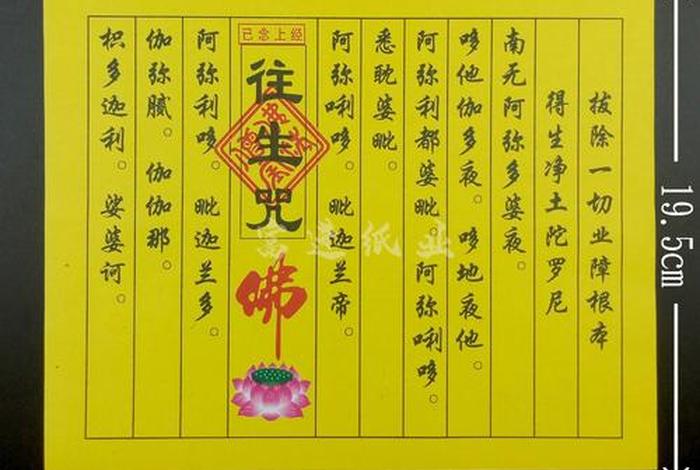 拔除一切业障根本
得生净土陀罗尼
南无阿弥多婆夜。
哆他伽多夜。哆地夜他。
阿弥利都婆毗。阿弥唎哆。
悉耽婆毗。
阿弥唎哆。毗迦兰帝。
已念上经
往生咒
佛
阿弥利哆。毗迦兰多。
伽弥腻。伽伽那。
枳多迦利。娑婆诃。
纸业
19.5cm